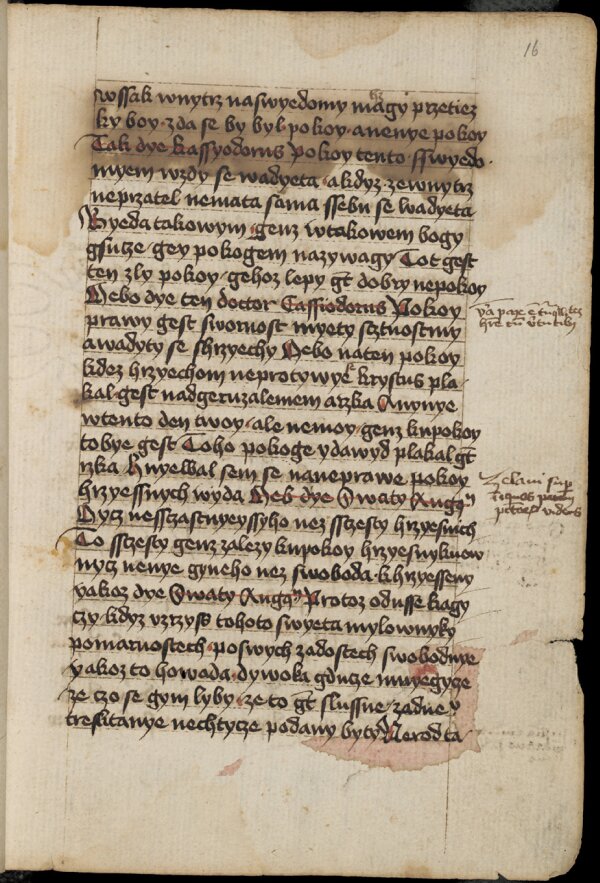 16
wssak wnytrz naswyedomy magy przetiez
ky boy · zda se by byl pokoy · anenye pokoy
Tak dye kassyodorus Pokoy tento · sswyedo
myem wzdy se wadyeta · akdyz zewnytrz
neprzatel nemata sama ssebu se wadyeta
Byeda takowym · genz wtakowem bogy
gsucze · gey pokogem nazywagy Tot gest
ten zly pokoy · gehoz lepy gt dobry nepokoy
Nebo dye ten doctor Cassiodorus Pokoy
prawy gest swornost myety sctnostmy
awadyty se shrzyechy Nebo naten pokoy
kdez hrzyechom neprotywye krystus pla
kal gest nadgeruzalemem arzka Anynye
wtento den twoy · ale nemoy · genz kupokoy
tobye gest Toho pokoge ydawyd plakal gt
rzka Hnyewal sem se naneprawe pokoy
hrzyessnych wyda Neb dye Swaty Aug
Nycz nessczastnyeyssyho nez sczesty hrzyesnich
To ssczesty genz zalezy kupokoy hrzyesnykuow
nycz nenye gyneho nez swoboda · khrzyesseny
yakoz dye Swaty Aug Protoz odusse kagy
czy · kdyz vzrzys tohoto swyeta mylownyky
pomarnostech · poswych zadostech swobodnye
yakoz to howada · dywoka gducze · nmyegycze
ze czo se gym lyby · ze to gt slussne · zadne
tresktanye nechtycze podany byty Nerod ta
Zelaui sup
iniquos pacem
petorum videns